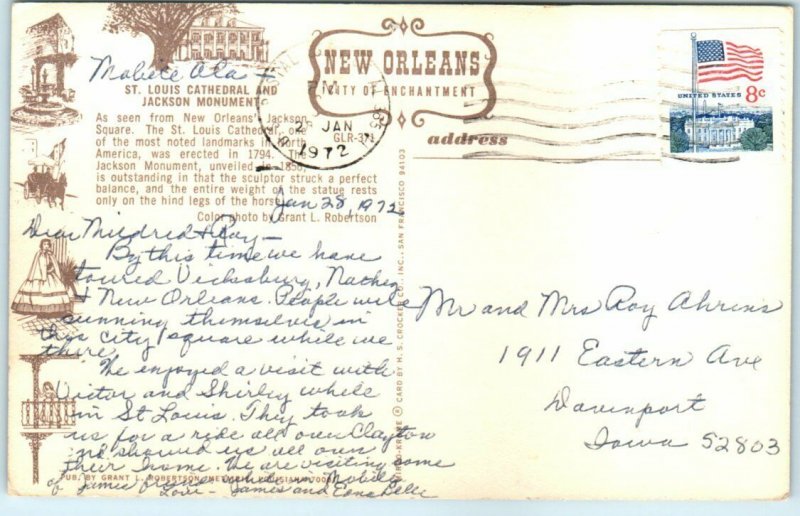 Mobile Ala
ST. LOUIS CATHEDRAL AND
JACKSON MONUMENT
As seen from New Orleans' Jackson
Square. The St. Louis Cathedral, one
of the most noted landmarks in North
America, was erected in 1794. The
Jackson Monument, unveiled in 1856,
is outstanding in that the sculptor struck a perfect
balance, and the entire weight of the statue rests
only on the hind legs of the horse.
Color photo by Grant L. Robertson
GLR-371
NEW ORLEANS
CITY OF ENCHANTMENT
28
JAN
1972
UNITED STATES 8c
address
Jan 28, 1972
Dear Mildred & Roy -
By this time we have
toured Vicksburg, Natchez
& New Orleans. People were
sunning themselves in
this city square while we
there.
We enjoyed a visit with
Victor and Shirley while
in St Louis. They took
us for a ride all over Clayton
and showed us all over
their home. We are visiting some
of James in Mobile
Love - James and
PUB. BY GRANT L. ROBERTSON, LOUISIANA
CARD BY H. S. CROCKER CO., INC., SAN FRANCISCO 94103
Mr and Mrs Roy Ahrens
1911 Eastern Ave
Davenport
Iowa 52803